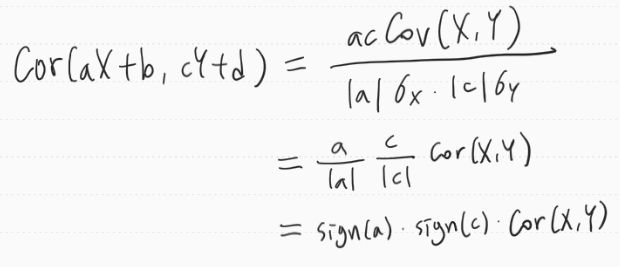 Cor(aX+b, cY+d) = ac Cov(X,Y) / |a| σX · |c| σY
= a/|a| c/|c| Cor(X,Y)
= sign(a) · sign(c) · Cor(X,Y)